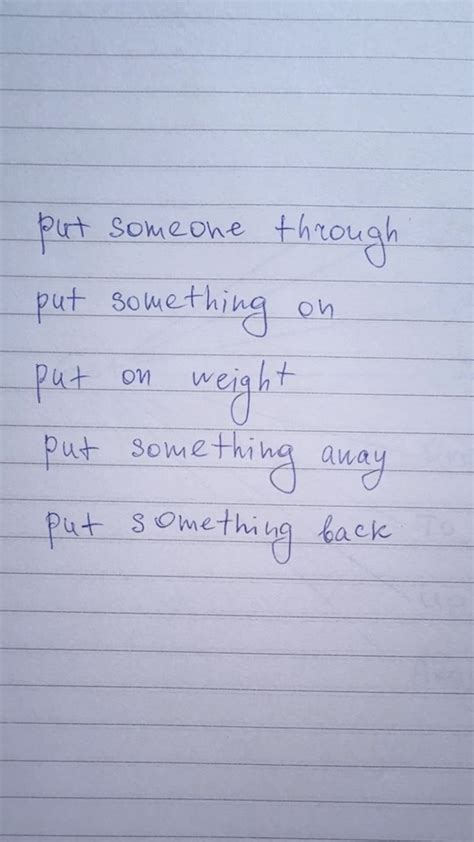 put someone through
put something on
put on weight
put something away
put something back